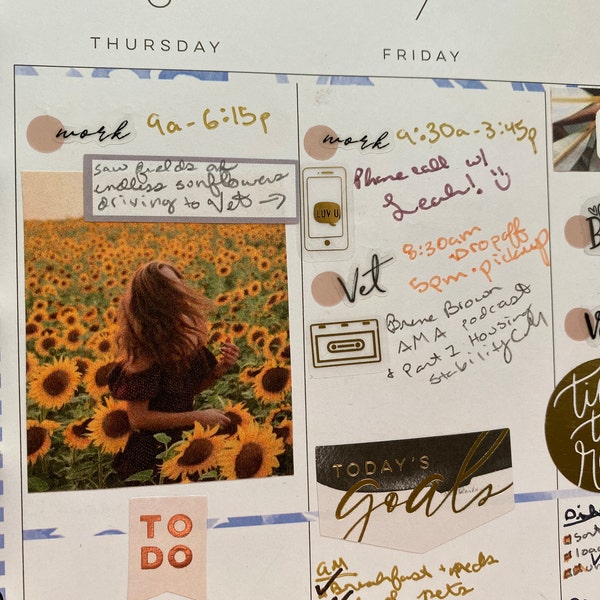 THURSDAY
FRIDAY
work 9a-6:15p
saw fields of
endless sunflowers
driving to vet →
TO
DO
work 9:30a-3:45p
Phone call w/
Leah! ☺
LUV U
Vet 8:30am
Dropoff
5pm pickup
Brene Brown
AMA podcast
& part 2 Housing
Stability
TODAY'S
goals
am
✓ Breakfast + meds